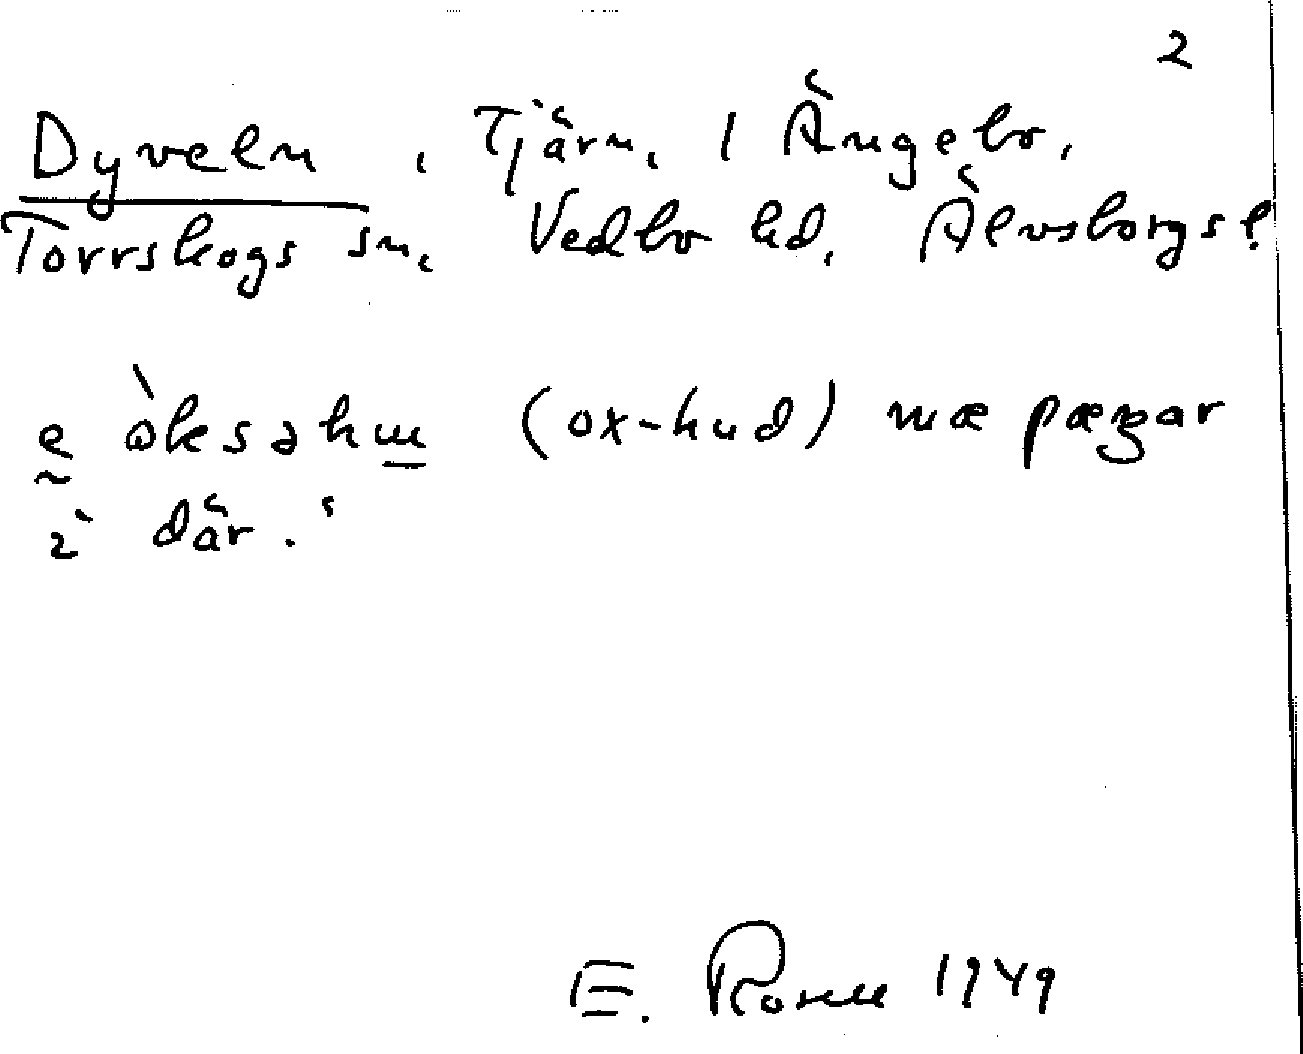 2
Dyveln, Tjärn, 1 Ängebo,
Torrskogs sn, Vedbo hd, Älvsborgs l
e òksəhɯ (ox-hud) mæ pæŋar
i där."
E. Rosell 1949